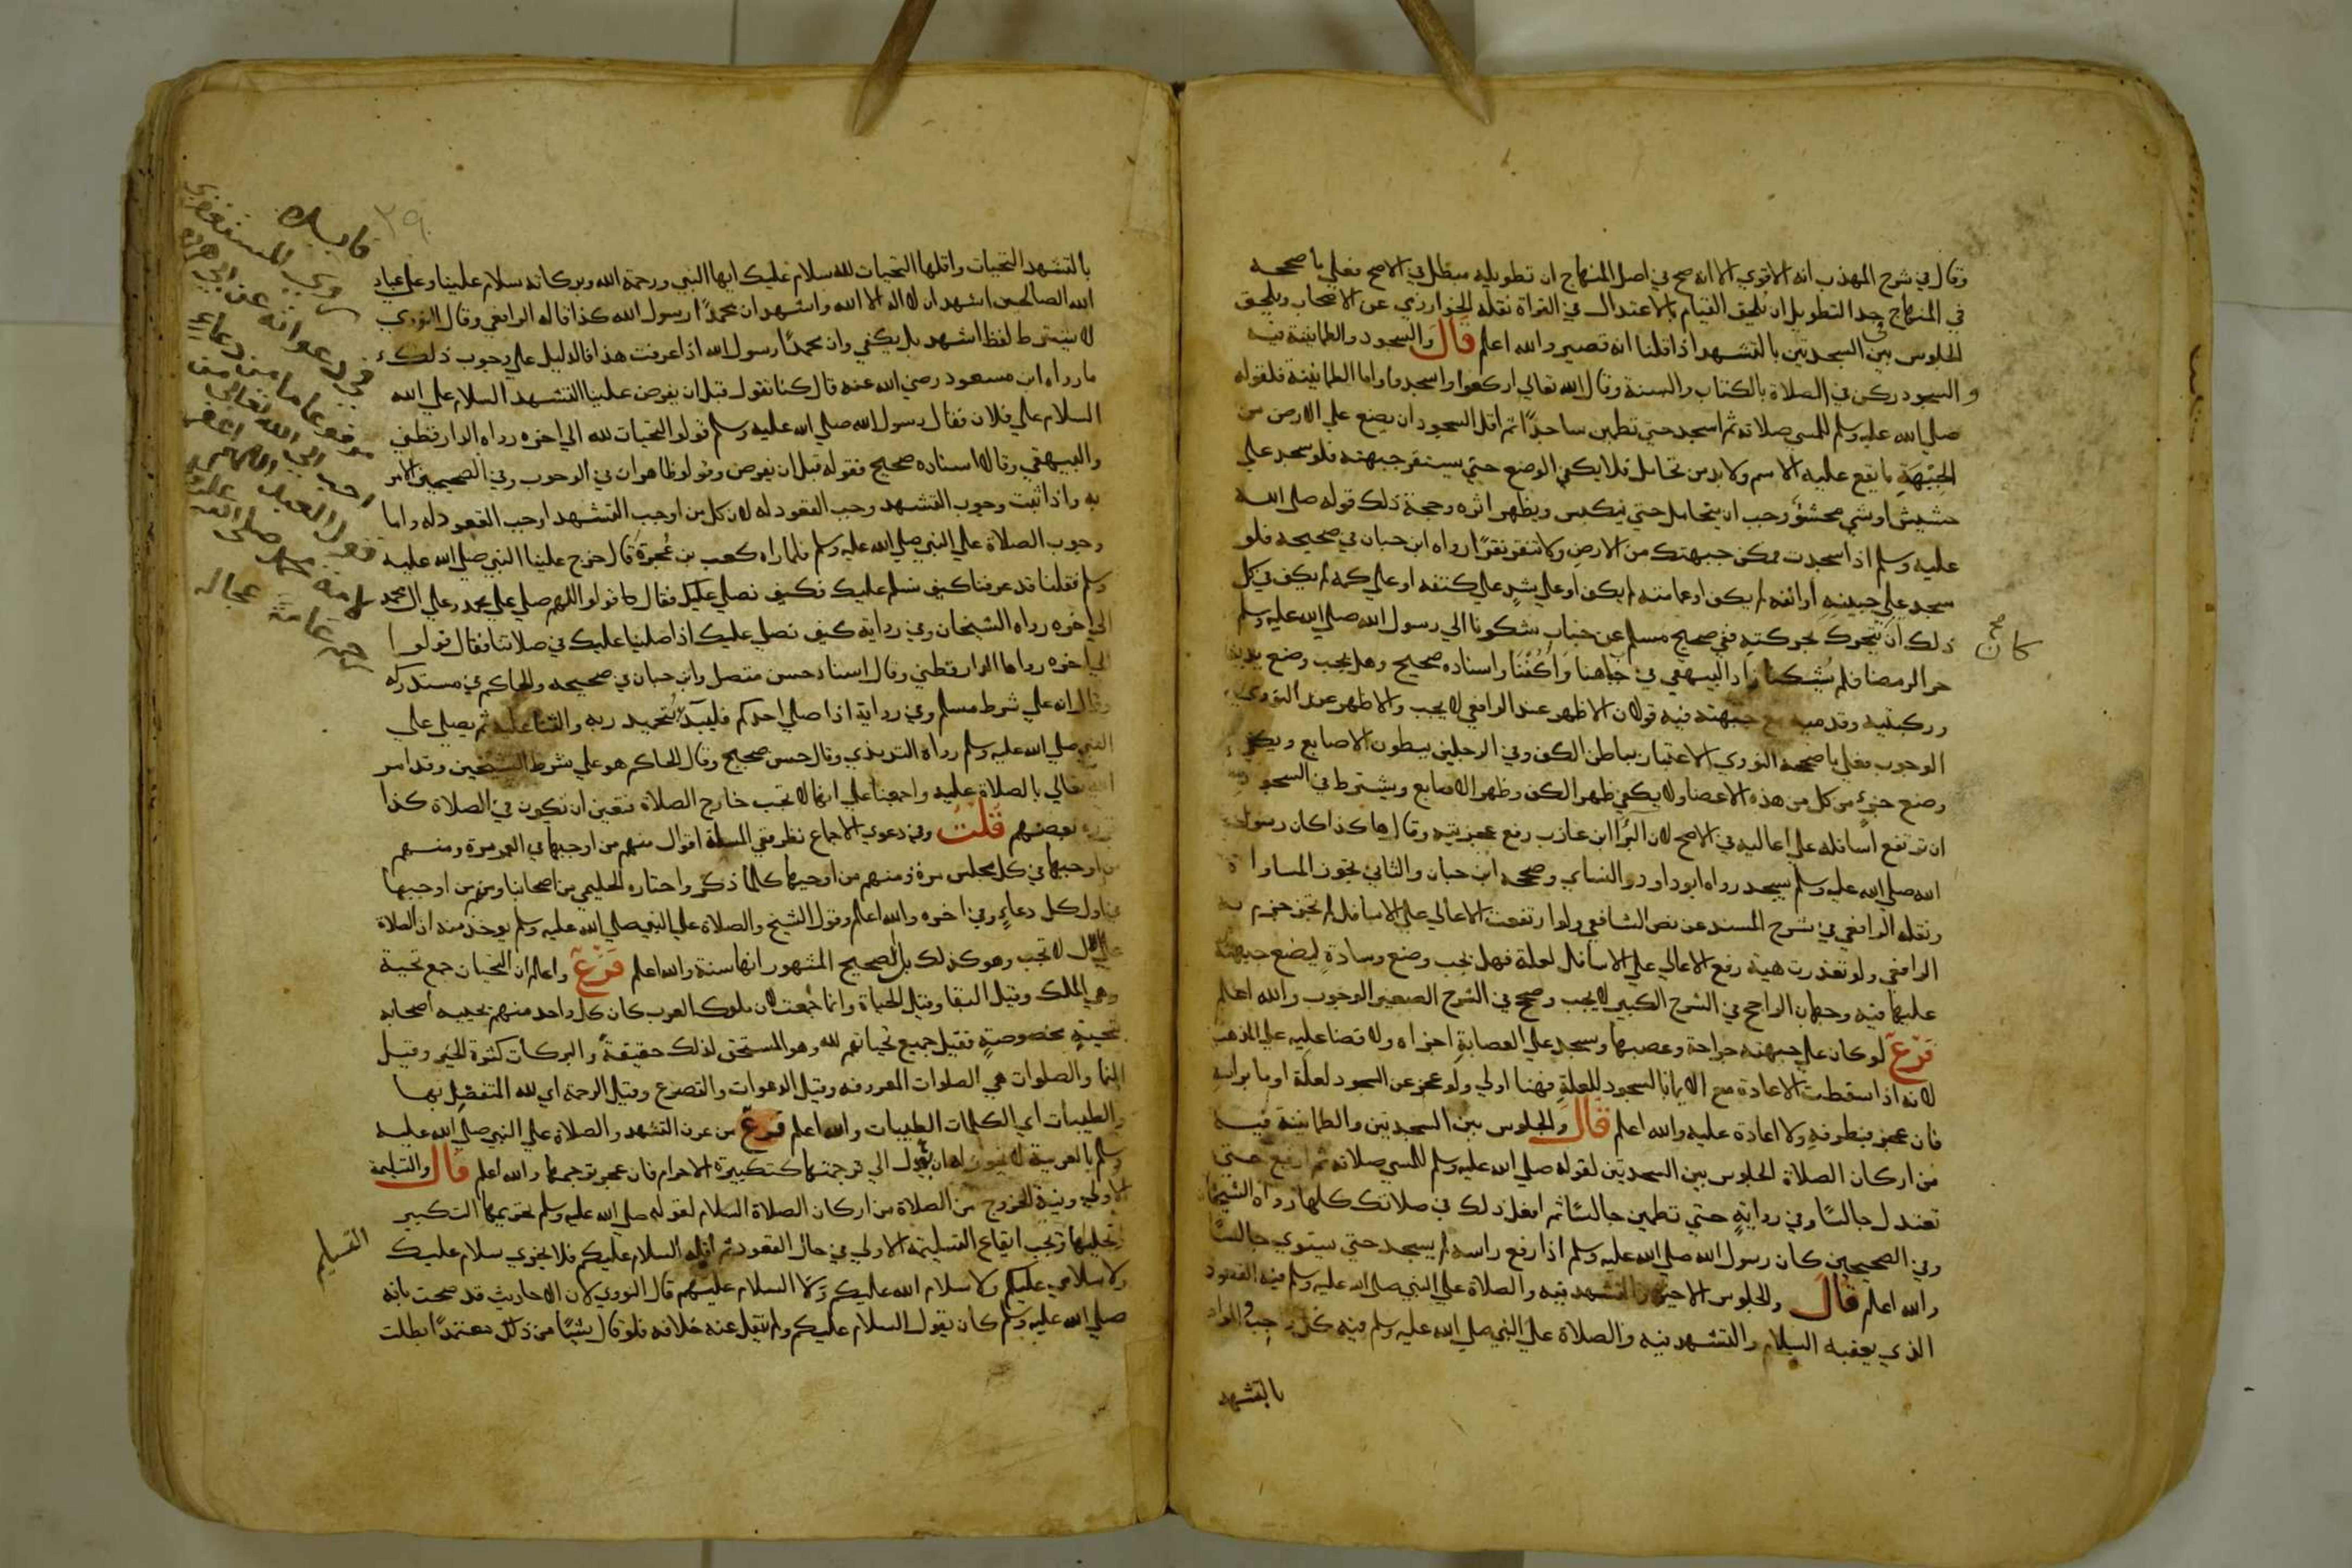 وقال في شرح المهذب انه الاقوي الا انه صح في اصل المنهاج ان تطويله مبطل في الاصح فعلي ما صححه
في المنهاج حد التطويل ان يلحق القيام بالاعتدال في القراة نقله الخوارزمي عن الاصحاب ويلحق
الجلوس بين السجدتين بالتشهد اذا قلنا انه قصير والله اعلم قال والسجود والطمانينة فيه
و السجود ركن في الصلاة بالكتاب والسنة وقال الله تعالي اركعوا واسجدوا واما الطمانينة فلقوله
صلي الله عليه وسلم للمسي صلاته ثم اسجد حتي تطمين ساجدًا ثم اقل السجود ان يضع علي الارض من
الجبهة ما يقع عليه الاسم ولا بد من تحامل فلا يكفي الوضع حتي يستقر جبهته فلو سجد علي
حشيش او شي محشو وجب ان يتحامل حتي ينكبس ويظهر اثره وحجة ذلك قوله صلي الله
عليه وسلم اذا سجدت فمكن جبهتك من الارض ولا تنقر نقرًا رواه ابن حبان في صحيحه فلو
سجد علي جبينه او انفه لم يكف او عمامته لم يكف او علي شي علي كتفه او علي كمه لم يكف في كل
ذلك ان يتحرك بحركته ففي صحيح مسلم عن خباب شكونا الي رسول الله صلي الله عليه وسلم
كان صح
حر الرمضا فلم يشكنا زاد البيهقي في جباهنا واكفنا واسناده صحيح وهل يجب وضع يديه
وركبتيه وقدميه مع جبهته فيه قولان الاظهر عند الرافعي لا يجب والاظهر عند النووي
الوجوب فعلي ما صححه النووي الاعتبار بباطن الكف وفي الرجلين ببطون الاصابع ويكفي
وضع جزء من كل من هذه الاعضا ولا يكفي ظهر الكف وظهر الاصابع ويشترط في السجود
ان ترتفع اسافله علي اعاليه في الاصح لان البرا ابن عازب رفع عجيزته وقال هاكذا كان رسول
الله صلي الله عليه وسلم يسجد رواه ابو داود والنساي وصححه ابن حبان والثاني تجوز المساواة
ونقله الرافعي في شرح المسند عن نص الشافعي ولو ارتفعت الاعالي علي الاسافل لم تجز جزم به
الرافعي ولو تعذرت هية رفع الاعالي علي الاسافل لعلة فهل يجب وضع وسادة ليضع جبهته
عليها فيه وجهان الراجح في الشرح الكبير لا يجب وصحح في الشرح الصغير الوجوب والله اعلم
فرع لو كان علي جبهته جراحة وعصبها وسجد علي العصابة اجزاه ولا قضا عليه علي المذهب
لانه اذا سقطت الاعادة مع الايما بالسجود للعلة فهنا اولي ولو عجز عن السجود لعلة اوما براسه
فان عجز فبطرفه ولا اعادة عليه والله اعلم قال والجلوس بين السجدتين والطمانينة فيه
من اركان الصلاة الجلوس بين السجدتين لقوله صلي الله عليه وسلم للمسي صلاته ثم ارفع حتي
تعتدل جالسًا وفي رواية حتي تطمين جالسًا ثم افعل ذلك في صلاتك كلها رواه الشيخان
وفي الصحيحين كان رسول الله صلي الله عليه وسلم اذا رفع راسه لم يسجد حتي يستوي جالسًا
والله اعلم قال والجلوس الاخير والتشهد فيه والصلاة علي النبي صلي الله عليه وسلم فيه القعود
الذي يعقبه السلام والتشهد فيه والصلاة علي النبي صلي الله عليه وسلم فيه كل واجب والمراد
بالتشهد
٣٩
بالتشهد التحيات واقلها التحيات لله سلام عليك ايها النبي ورحمة الله وبركاته سلام علينا وعلي عباد
الله الصالحين اشهد ان لا اله الا الله واشهد ان محمدًا رسول الله كذا قاله الرافعي وقال النووي
لا يشترط لفظ اشهد بل يكفي وان محمدًا رسول الله اذا عرفت هذا فالدليل علي وجوب ذلك
ما رواه ابن مسعود رضي الله عنه قال كنا نقول قبل ان يفرض علينا التشهد السلام علي الله
السلام علي فلان فقال رسول الله صلي الله عليه وسلم قولوا التحيات لله الي اخره رواه الدارقطني
والبيهقي وقالا اسناده صحيح فقوله قبل ان يفرض وقولوا ظاهران في الوجوب وفي الصحيحين الامر
به واذا ثبت وجوب التشهد وجب القعود له لان كل من اوجب التشهد اوجب القعود له واما
وجوب الصلاة علي النبي صلي الله عليه وسلم فلما رواه كعب بن عجرة قال خرج علينا النبي صلي الله عليه
وسلم فقلنا قد عرفنا كيف نسلم عليك فكيف نصلي عليك فقال قولوا اللهم صلي علي محمد وعلي ال محمد
الي اخره رواه الشيخان وفي رواية كيف نصلي عليك اذا صلينا عليك في صلاتنا فقال قولوا
الي اخره رواها الدارقطني وقال اسناد حسن متصل وابن حبان في صحيحه والحاكم في مستدركه
وقال انه علي شرط مسلم وفي رواية اذا صلي احدكم فليبدا بتحميد ربه والثنا عليه ثم يصلي علي
النبي صلي الله عليه وسلم رواه الترمذي وقال حسن صحيح وقال الحاكم هو علي شرط الشيخين وقد امر
الله تعالي بالصلاة عليه واجمعنا علي انها لا تجب خارج الصلاة فتعين ان تكون في الصلاة كذا
بعضهم قلت وفي دعوي الاجماع نظر ففي المسلة اقوال منهم من اوجبها في العمر مرة ومنهم
من اوجبها في كل مجلس مرة ومنهم من اوجبها كلما ذكر واختاره الحليمي من اصحابنا ومنهم من اوجبها
في اول كل دعاء وفي اخره والله اعلم وقول الشيخ والصلاة علي النبي صلي الله عليه وسلم يوخذ منه ان الصلاة
علي الال لا تجب وهو كذلك بل الصحيح المشهور انها سنة والله اعلم فرع واعلم ان التحيات جمع تحية
وهي الملك وقيل البقا وقيل الحياة وانما جمعت لان ملوك العرب كان كل واحد منهم يحييه اصحابه
بتحية مخصوصة فقيل جميع تحياتهم لله وهو المستحق لذلك حقيقة والبركات كثرة الخير وقيل
النما والصلوات هي الصلوات المعروفة وقيل الدعوات والتضرع وقيل الرحمة اي لله المتفضل بها
والطيبات اي الكلمات الطيبات والله اعلم فرع من عرف التشهد والصلاة علي النبي صلي الله عليه
وسلم بالعربية لا يجوز له ان يعدل الي ترجمتها كتكبيرة الاحرام فان عجز ترجمها والله اعلم قال والتسليمة
الاولي ونية الخروج من الصلاة من اركان الصلاة السلام لقوله صلي الله عليه وسلم تحريمها التكبير
وتحليلها ويجب ايقاع التسليمة الاولي في حال القعود ثم اقله السلام عليكم فلا يجزي سلام عليك
التسليم
ولا سلامي عليكم ولا سلام الله عليكم ولا السلام عليهم قال النووي لان الاحاديث قد صحت بانه
صلي الله عليه وسلم كان يقول السلام عليكم ولم ينقل عنه خلافه فلو قال شيئًا من ذلك متعمدًا بطلت
فايدة
روي المستغفري
في دعواته عن ابي هريرة
مرفوعا ما من دعاء
احب الي الله تعالى من
قول العبد اللهم اغفر
لامة محمد صلى الله عليه
رحمة عامة